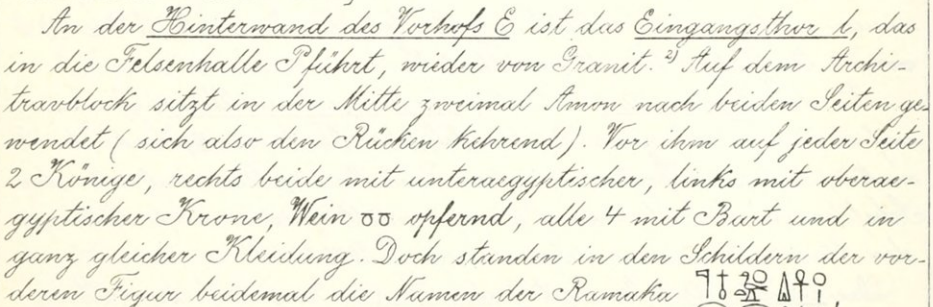 An der Hinterwand des Vorhofs E ist das Eingangsthor l, das
in die Felsenhalle P führt, wieder von Granit. 2) Auf dem Archi-
travblock sitzt in der Mitte zweimal Amon nach beiden Seiten ge-
wendet (sich also den Rücken kehrend). Vor ihm auf jeder Seite
2 Könige, rechts beide mit unteraegyptischer, links mit oberae-
gyptischer Krone, Wein opfernd, alle 4 mit Bart und in
ganz gleicher Kleidung. Doch standen in den Schildern der vor-
deren Figur beidemal die Namen der Ramaka